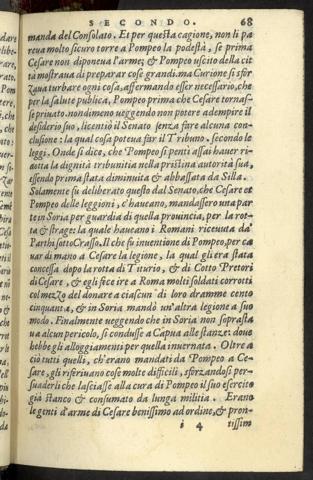 SECONDO. 68
manda del Consolato. Et per questa cagione, non li pa
reua molto sicuro torre a Pompeo la podestà, se prima
Cesare non diponeua l'arme; & Pompeo uscito della cit
tà mostraua di preparar cose grandi. ma Curione si sfor
zaua turbare ogni cosa, affermando esser necessario, che
per la salute publica, Pompeo prima che Cesare tornas-
se priuato. nondimeno ueggendo non potere adempire il
desiderio suo, licentiò il Senato senza fare alcuna con-
clusione: la qual cosa poteua far il Tribuno. secondo le
leggi. Onde si dice, che Pompeo si pentì assai hauer ri-
dotta la dignità tribunitia nella pristina autorità sua,
essendo prima stata diminuita & abbassata da Silla.
Solamente fu deliberato questo dal Senato, che Cesare et
Pompeo delle legioni, c'haueano, mandassero una par
te in Soria per guardia di quella prouincia, per la rot-
ta & strage: la quale haueano i Romani riceuuta da'
Parthi sotto Crasso. Il che fu inuentione di Pompeo, per ca
uar di mano a Cesare la legione, la qual gli era stata
concessa dopo la rotta di Titurio, & di Cotto Pretori
di Cesare, & egli fece ire a Roma molti soldati corrotti
col mezo del donare a ciascun' di loro dramme cento
cinquanta, & in Soria mandò un'altra legione a suo
modo. Finalmente ueggendo che in Soria non soprasta
ua alcun pericolo, si condusse a Capua alle stanze: doue
hebbe gli alloggiamenti per quella inuernata. Oltre a
ciò tutti quelli, ch'erano mandati da Pompeo a Ce-
sare, gli riferiuano cose molto difficili, sforzandosi per-
suaderli che lasciasse alla cura di Pompeo il suo esercito
già stanco & consumato da lunga militia. Erano
le genti d'arme di Cesare benissimo ad ordine, & pron-
i 4 tissim